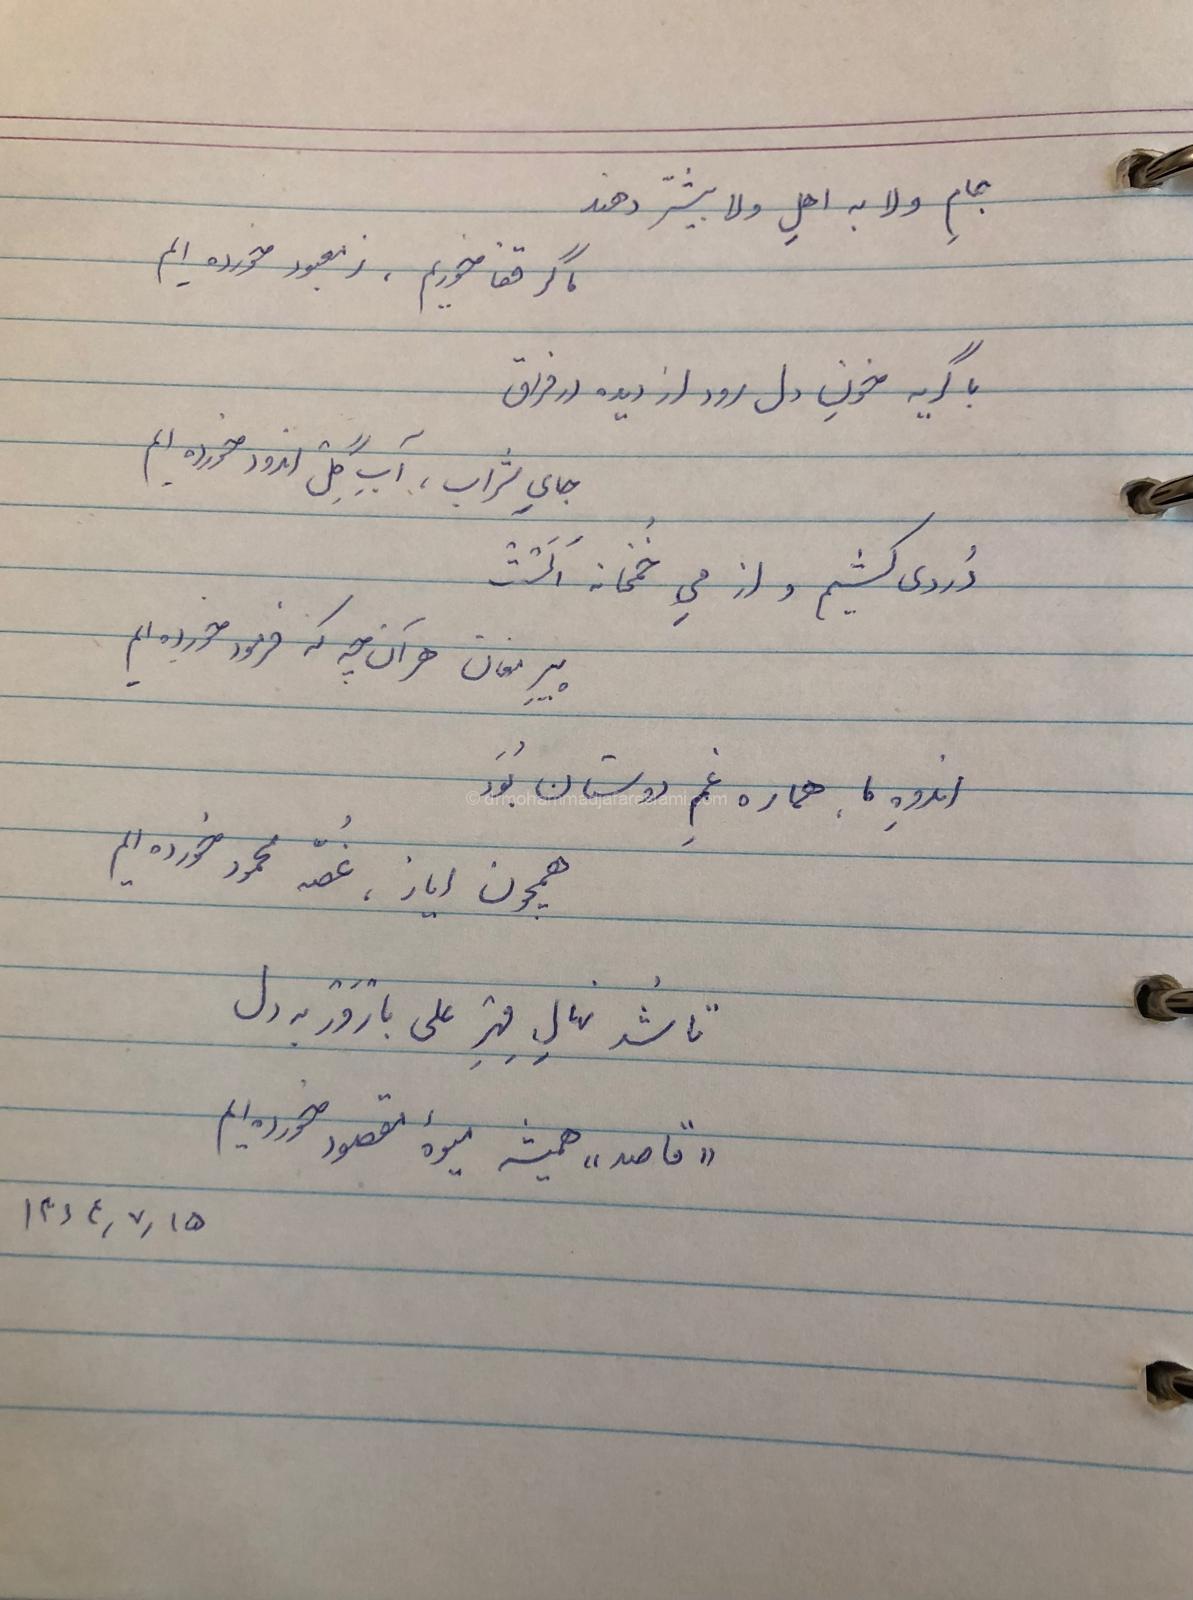 جامِ ولا به اهلِ ولا بیشتر دهند
ما گر قفا خوریم ، ز معبود خورده ایم
با گریه خونِ دل رود از دیده در فراق
جایِ شراب ، آبِ اندود خورده ایم
دُردی کشیم و از میِ خُمخانه اَلَست
پیرِ مغان هر آن چه که فرمود خورده ایم
اندوهِ ما ، هماره غمِ دوستان بُوَد
همچون ایاز ، غُصّه محمود خورده ایم
تا شُد نهالِ مِهرِ علی بارْوَرْ به دل
«قاصد» همیشه میوهٔ مقصود خورده ایم
۱۳۶۴٫۷٫۱۵
© drmohammadjafareslami.com